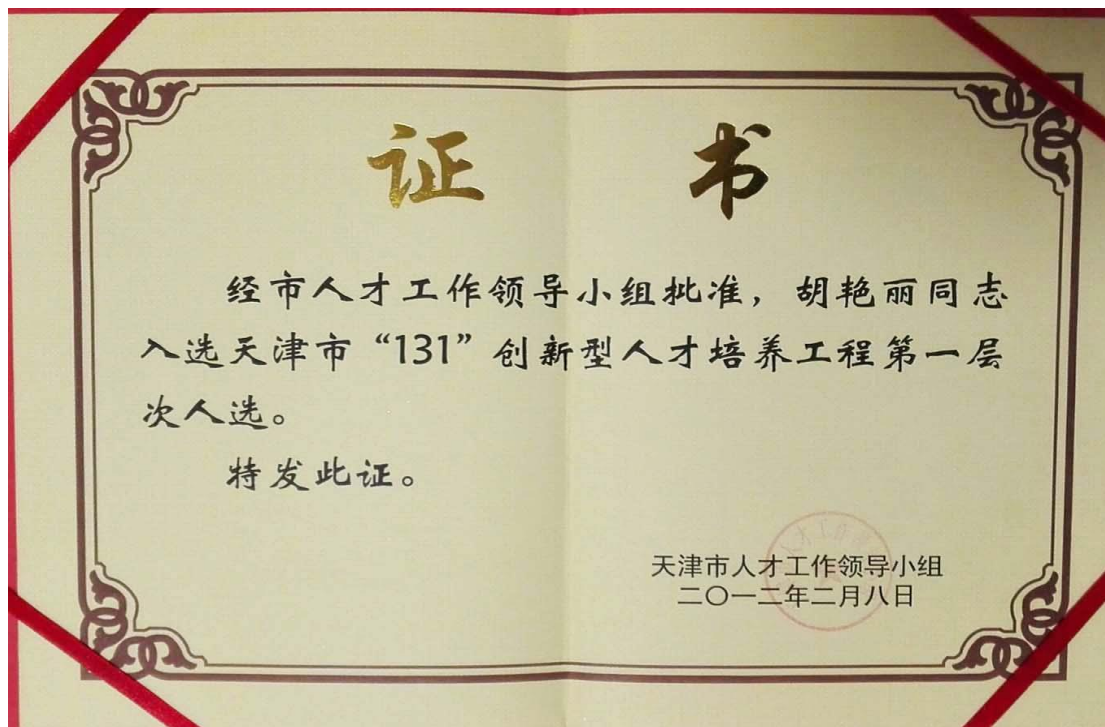 证 书
经市人才工作领导小组批准，胡艳丽同志
入选天津市“131”创新型人才培养工程第一层
次人选。
特发此证。
天津市人才工作领导小组
二〇一二年二月八日